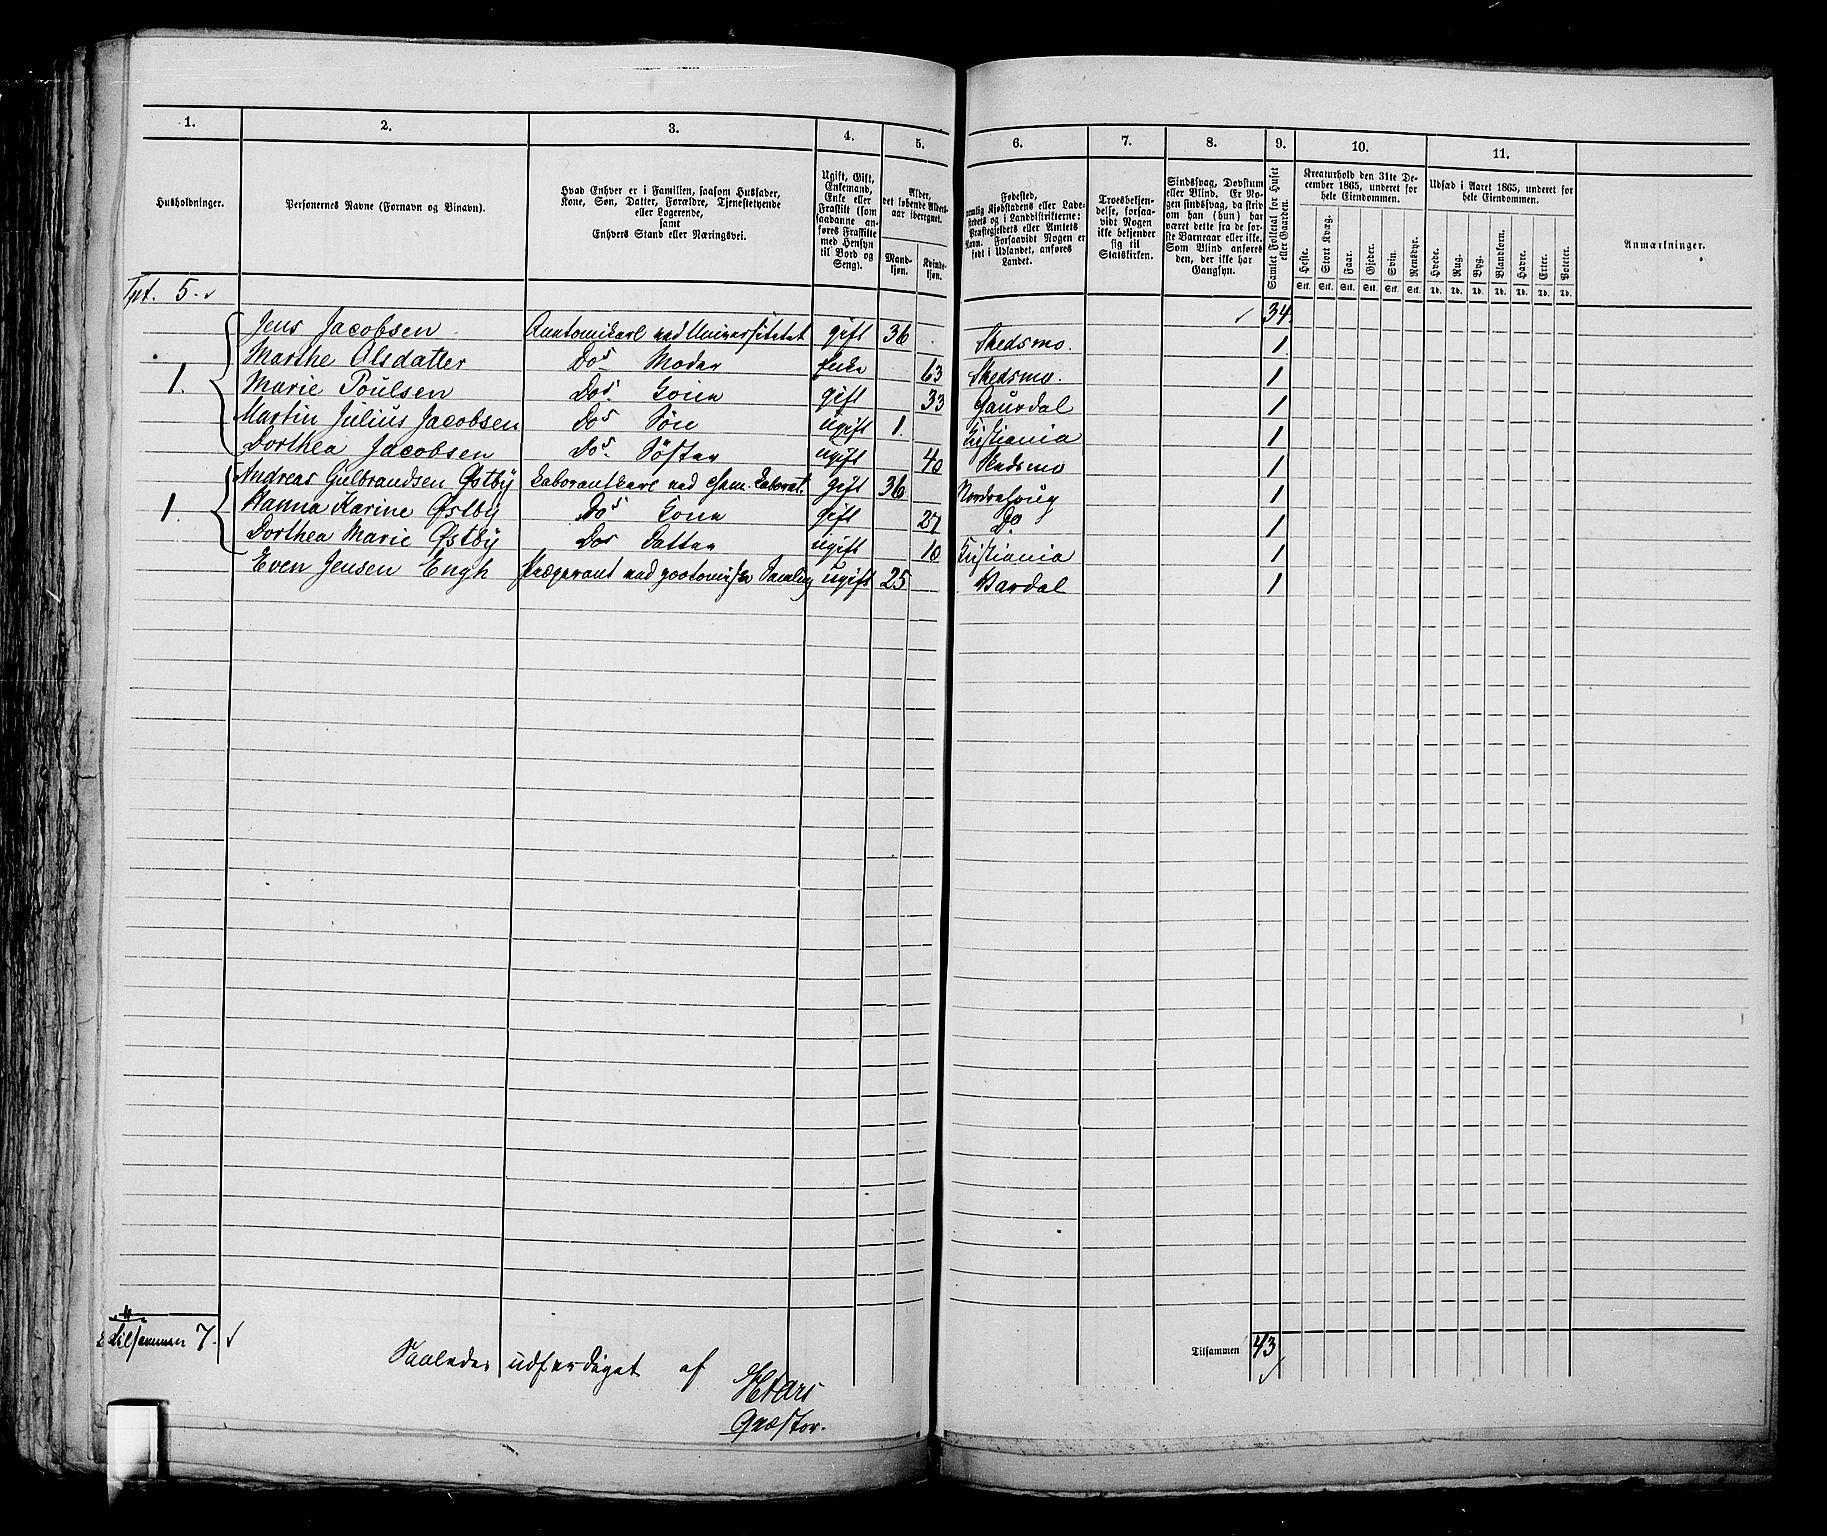 1. 2. 3. 4. 5. 6. 7. 8. 9. 10. 11.
Husholdninger.
Personernes Navne (Fornavn og Binavn).
Hvad Enhver er i Familien, saasom Husfader,
Kone, Søn, Datter, Forældre, Tjenestetyende
eller Logerende,
samt
Enhvers Stand eller Næringsvei.
Ugift, Gift,
Enkemand,
Enke eller
Fraskilt (som
saadanne an-
føres Fraskilte
med Hensyn
til Bord og
Seng).
Alder,
det løbende Alders-
aar iberegnet.
Mand-
kjøn.
Kvinde-
kjøn.
Fødested,
nemlig Kjøbstadens eller Lade-
stedets og i Landdistrikterne:
Præstegjeldets eller Amtets
Navn. Forsaavidt Nogen er
født i Udlandet, anføres
Landet.
Troesbekjen-
delse, forsaa-
vidt Nogen
ikke bekjender
sig til
Statskirken.
Sindssvag, Døvstum
eller Blind. Er No-
gen sindssvag, da skriv
om han (hun) har
været dette fra de før-
ste Barneaar eller ikke.
Som Blind anføres
den, der ikke har
Gangsyn.
Samlet Folketal for Huset
eller Gaarden.
Kreaturhold den 31te De-
cember 1865, underet for
hele Eiendommen.
Heste. Stort Kvæg. Faar. Gjeder. Svin. Rensdyr.
Stk. Stk. Stk. Stk. Stk. Stk.
Udsæd i Aaret 1865, underet for
hele Eiendommen.
Hvede. Rug. Byg. Blandkorn. Havre. Erter. Poteter.
Td. Td. Td. Td. Td. Td. Td.
Anmærkninger.
Tpt. 5. 34.
Jens Jacobsen Anatomikarl ved Universitetet gift 36 Skedsmo. 1
Marthe Olsdatter Do s Moder Enke 63 Skedsmo. 1
1. Marie Poulsen Do s Kone gift 33 Gausdal 1
Martin Julius Jacobsen Do s Søn ugift 1. Kristiania 1
Dorthea Jacobsen Do s Søster ugift 40 Skedsmo 1
Andreas Gulbrandsen Østby Laborantkarl ved chem. Laborat. gift 36 1
1. Hanna Karine Østby Do s Kone gift 27 Do 1
Dorthea Marie Østby Do s Datter ugift 10 Kristiania 1
Even Jensen Engh ved zootomiske Samling ugift 25 1
Tilsammen 7.
Tilsammen 43
Saaledes udfærdiget af
Qvæstor.